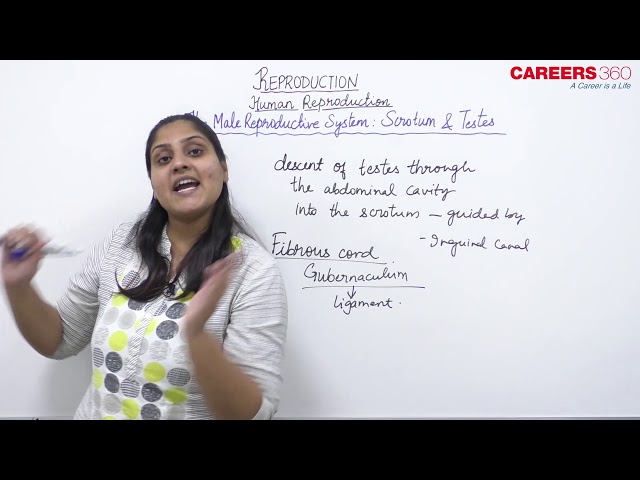 CAREERS360
A Career is a Life
REPRODUCTION
Human Reproduction
Male Reproductive System: Scrotum & Testes
descent of testes through
the abdominal cavity
Into the scrotum – guided by
- Inguinal Canal
Fibrous cord
Gubernaculum
ligament.